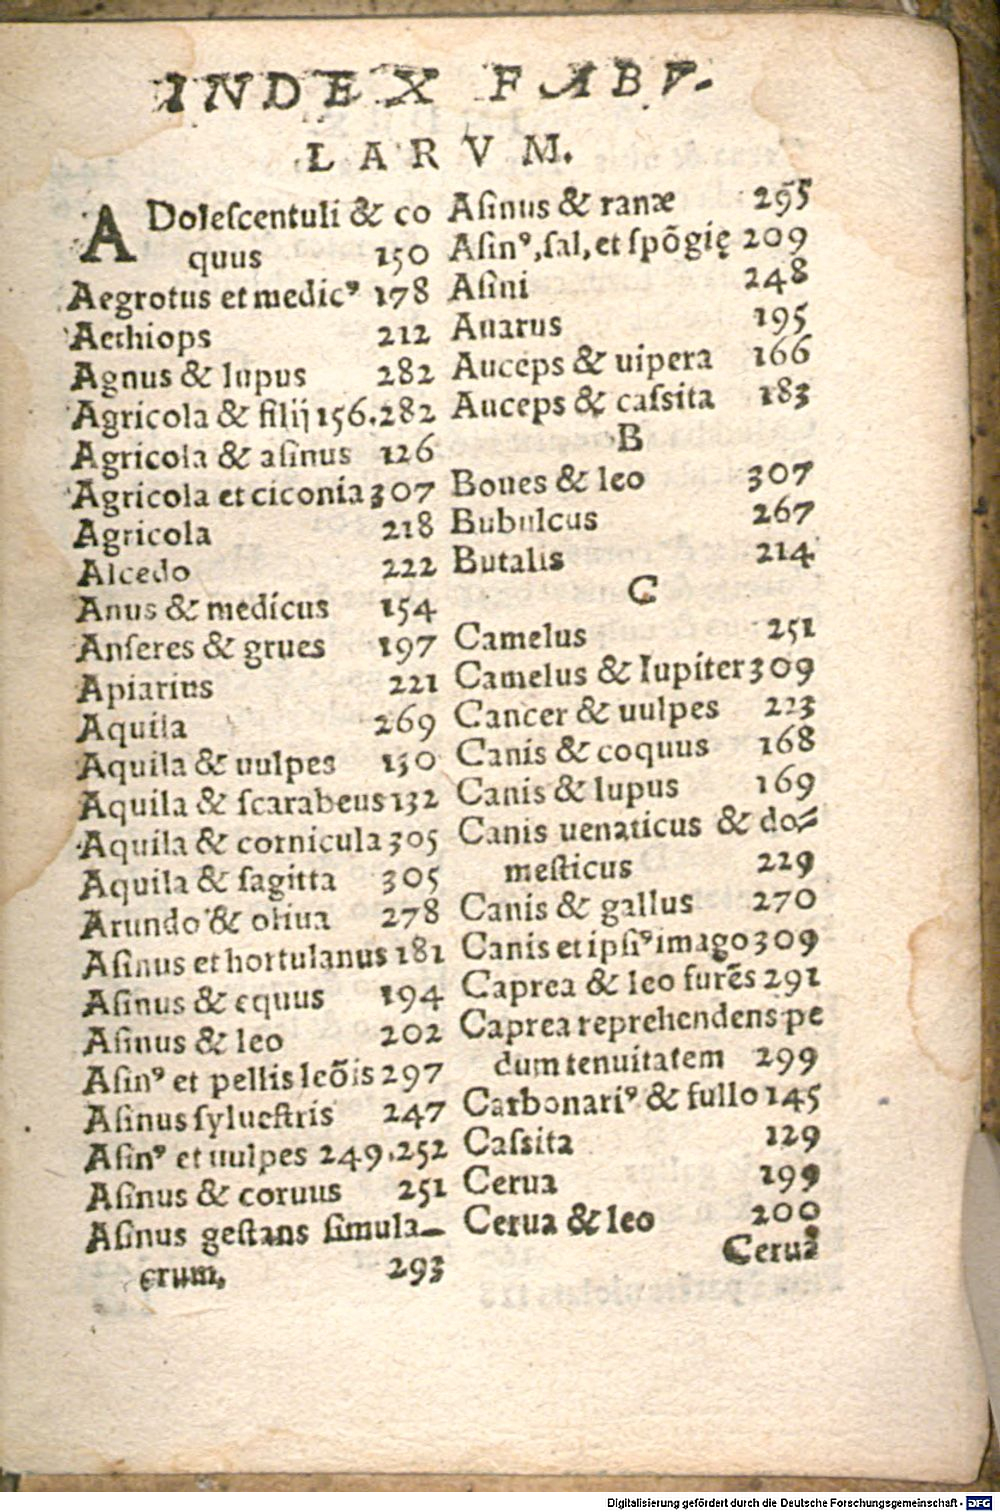 INDEX FABV-
LARVM.
ADolescentuli & co
quus 150
Aegrotus et medicꝰ 178
Aethiops 212
Agnus & lupus 282
Agricola & filij 156.282
Agricola & asinus 126
Agricola et ciconia 307
Agricola 218
Alcedo 222
Anus & medicus 154
Anseres & grues 197
Apiarius 221
Aquila 269
Aquila & uulpes 130
Aquila & scarabeus 132
Aquila & cornicula 305
Aquila & sagitta 305
Arundo & oliua 278
Asinus et hortulanus 181
Asinus & equus 194
Asinus & leo 202
Asinꝰ et pellis leõis 297
Asinus syluestris 247
Asinꝰ et uulpes 249.252
Asinus & coruus 251
Asinus gestans simula-
crum, 293
Asinus & ranæ 295
Asinꝰ, sal, et spõgię 209
Asini 248
Auarus 195
Auceps & uipera 166
Auceps & cassita 183
B
Boues & leo 307
Bubulcus 267
Butalis 214
C
Camelus 251
Camelus & Iupiter 309
Cancer & uulpes 223
Canis & coquus 168
Canis & lupus 169
Canis uenaticus & do-
mesticus 229
Canis & gallus 270
Canis et ipsiꝰ imago 309
Caprea & leo furẽs 291
Caprea reprehendens pe
dum tenuitatem 299
Carbonariꝰ & fullo 145
Cassita 129
Cerua 199
Cerua & leo 200
Cerua
Digitalisierung gefördert durch die Deutsche Forschungsgemeinschaft - DFG